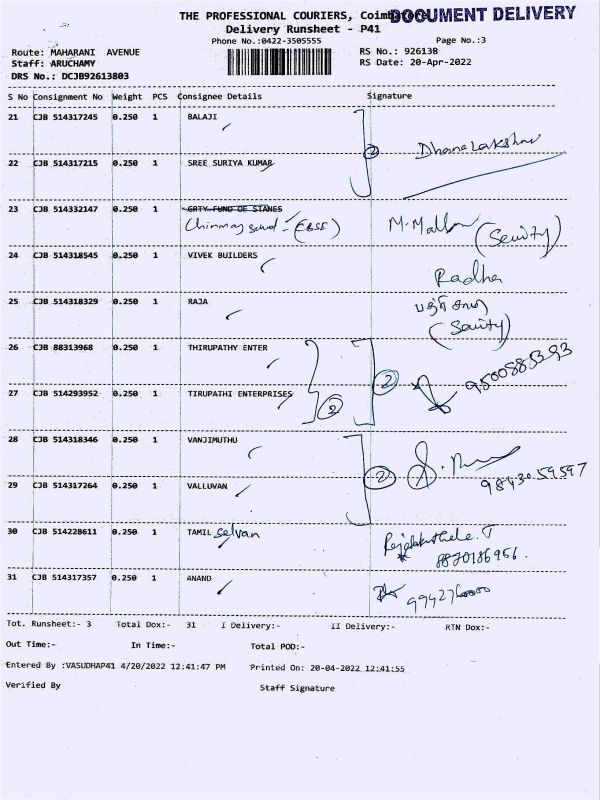 THE PROFESSIONAL COURIERS, Coimbatore
DOCUMENT DELIVERY
Delivery Runsheet - P41
Phone No.:0422-3505555 Page No.:3
Route: MAHARANI AVENUE RS No.: 926138
Staff: ARUCHAMY RS Date: 20-Apr-2022
DRS No.: DCJB92613803
S No Consignment No Weight PCS Consignee Details Signature
21 CJB 514317245 0.250 1 BALAJI
2 Dhanalakshmi
22 CJB 514317215 0.250 1 SREE SURIYA KUMAR
23 CJB 514332147 0.250 1 GRTY FUND OF STANES
(EBSS) (Security)
24 CJB 514318545 0.250 1 VIVEK BUILDERS
Radha
25 CJB 514318329 0.250 1 RAJA
(Security)
26 CJB 88313968 0.250 1 THIRUPATHY ENTER
2 9500885393
27 CJB 514293952 0.250 1 TIRUPATHI ENTERPRISES
2
28 CJB 514318346 0.250 1 VANJIMUTHU
2
29 CJB 514317264 0.250 1 VALLUVAN 9843059597
30 CJB 514228611 0.250 1 TAMIL Selvan
8870186956.
31 CJB 514317357 0.250 1 ANAND
Tot. Runsheet:- 3 Total Dox:- 31 I Delivery:- II Delivery:- RTN Dox:-
Out Time:- In Time:- Total POD:-
Entered By :VASUDHAP41 4/20/2022 12:41:47 PM Printed On: 20-04-2022 12:41:55
Verified By Staff Signature